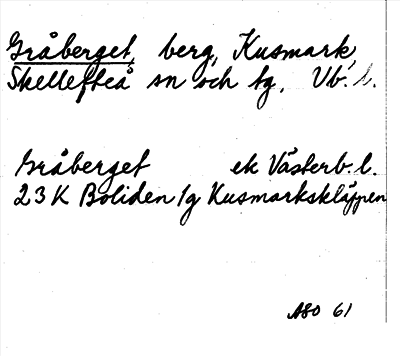 Gråberget, berg, Kusmark,
Skellefteå sn och tg, Vb. l.
Gråberget ek Västerb. l.
23K Boliden 1g Kusmarkskläppen
ASO 61